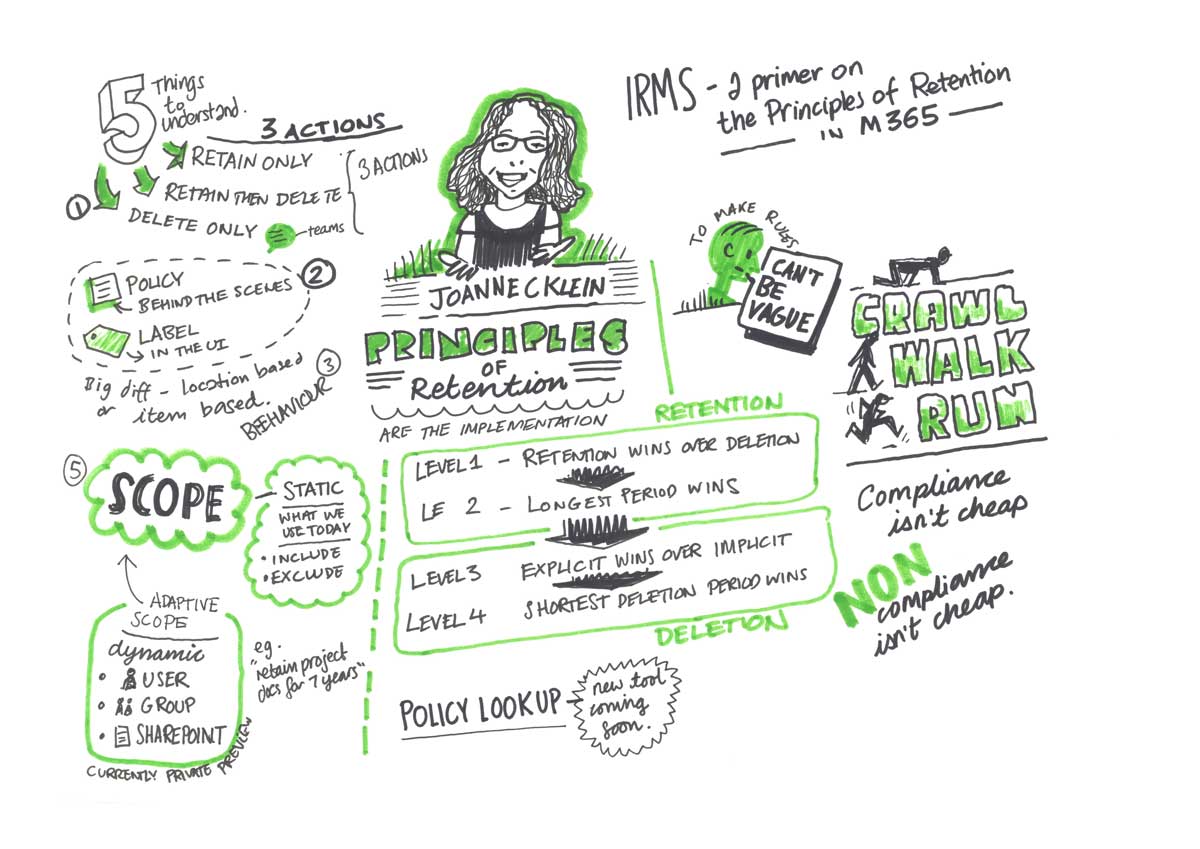 5 Things
to
understand.
3 ACTIONS
RETAIN ONLY
RETAIN THEN DELETE
DELETE ONLY
3 ACTIONS
1
teams
POLICY
BEHIND THE SCENES
2
LABEL
IN THE UI
Big diff - location based
or item based.
BEEHAVIOUR
3
5
SCOPE
STATIC
WHAT WE
USE TODAY
• INCLUDE
• EXCLUDE
ADAPTIVE
SCOPE
dynamic
• USER
• GROUP
• SHAREPOINT
CURRENTLY PRIVATE PREVIEW
eg.
"retain project
docs for 7 years"
JOANNE C KLEIN
PRINCIPLES
OF
Retention
ARE THE IMPLEMENTATION
RETENTION
LEVEL 1 - RETENTION WINS OVER DELETION
LE 2 - LONGEST PERIOD WINS
LEVEL 3 EXPLICIT WINS OVER IMPLICIT
LEVEL 4 SHORTEST DELETION PERIOD WINS
DELETION
POLICY LOOKUP -
new tool
coming
soon.
IRMS - a primer on
the Principles of Retention
IN M365
TO MAKE RULES
CAN'T
BE
VAGUE
CRAWL
WALK
RUN
Compliance
isn't cheap
NON
compliance
isn't cheap.